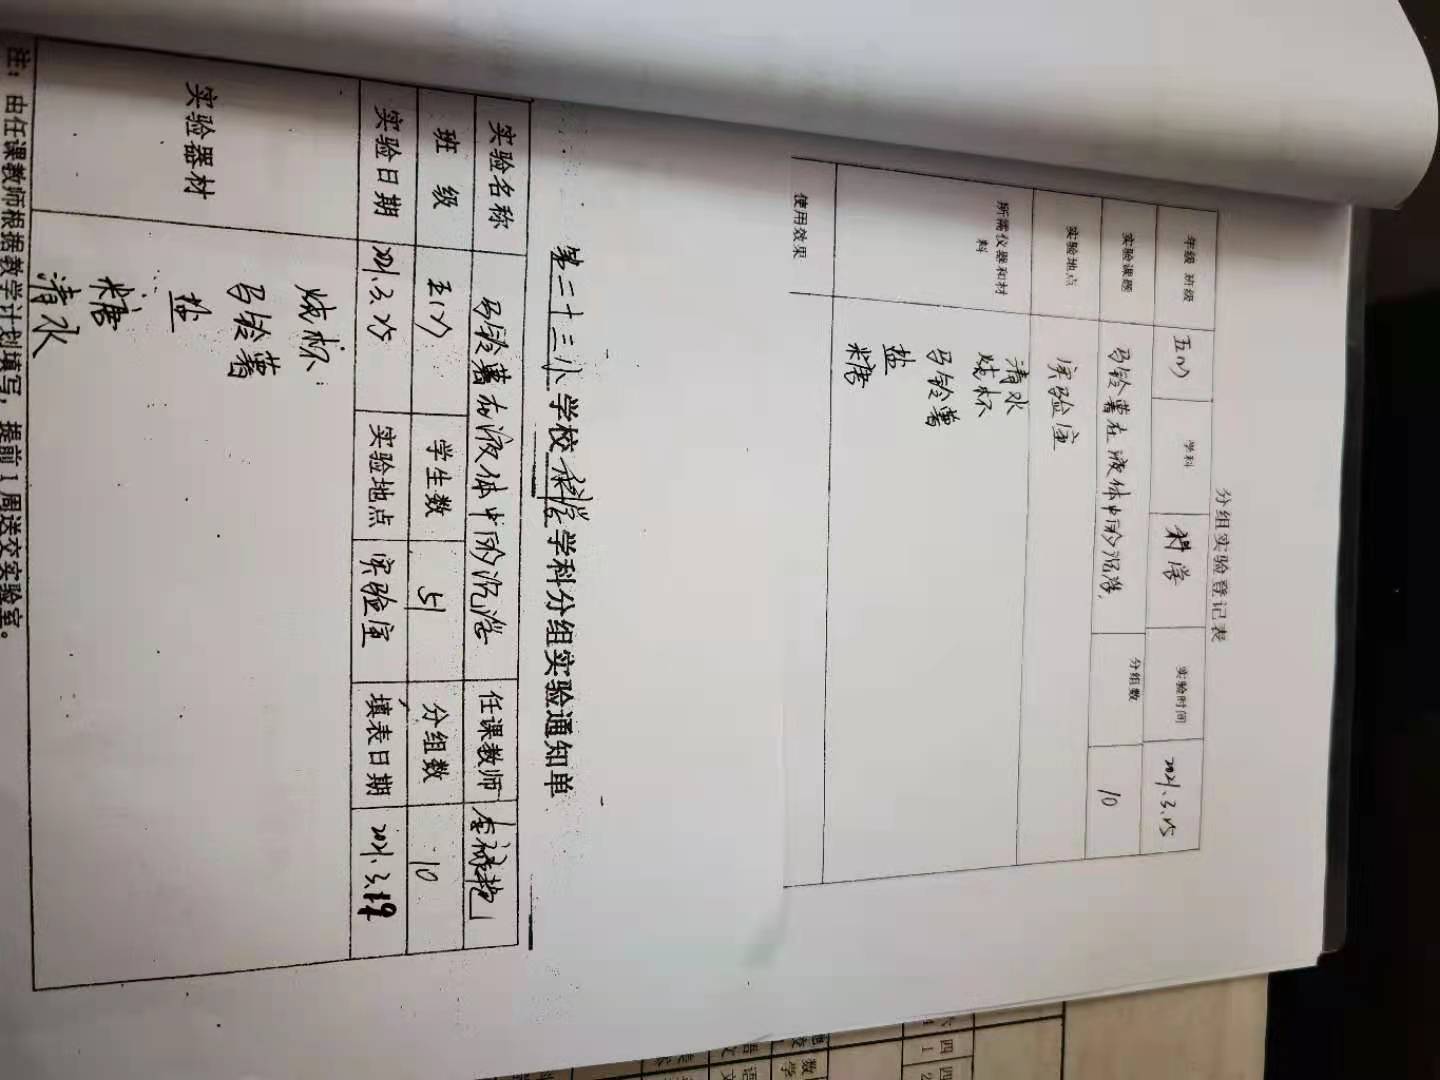 分组实验登记表
年级 班级 五(1) 学科 科学 实验时间 2021.3.25
实验课题 马铃薯在液体中的沉浮 分组数 10
实验地点 实验室
所需仪器和材料
清水
烧杯
马铃薯
盐
糖
使用效果
第二十三小学校科学学科分组实验通知单
实验名称 马铃薯在液体中的沉浮 任课教师
班 级 五(1) 学生数 51 分组数 10
实验日期 2021.3.25 实验地点 实验室 填表日期
实验器材
烧杯
马铃薯
盐
糖
清水
注：由任课教师根据教学计划填写，提前1周送交实验室。